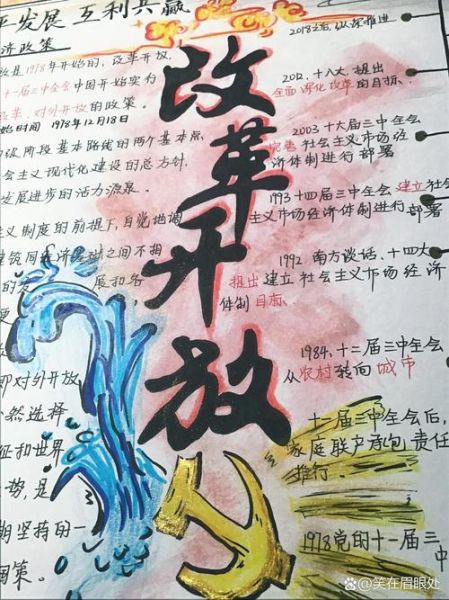 平发展 互利共赢
济政策
改革开放
放是1978年开始的,改革开放,
十一届三中全会中国开始实行
改革、对外开放的政策。
始时间 1978年12月18日
初级阶段基本路线的两个基本点
会主义现代化建设的总方针,
发展进步的活力源泉。
义制度的前提下,自觉地调
建筑同经济基础之间不相
的
展和各
便
即对外开放
必然选择
征和世界
势,是
期坚持的一
国策。
2013之后,纵深推进
2012,十八大,提出
全面深化改革的目标。
2003 十六届三中全会
完善社会主义市场经
济体制进行部署
1993十四届三中全会建立社会
主义市场经济体制进行部署
1992 南方谈话、十四大
提出建立社会主义市场经济
体制目标.
1984,十二届三中全会
从农村转向城市
十一届三中全会后,
家庭联产承包责任
推行.
1978党的十一届三
中
百家号/笑在眉眼处